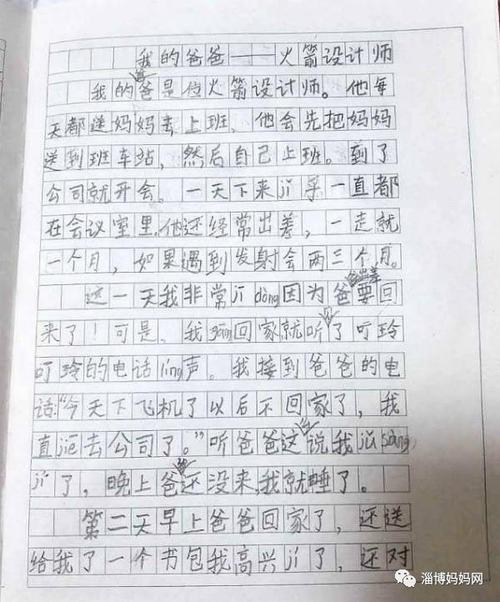 我的爸爸——火箭设计师
我的爸爸是位火箭设计师。他每
天都送妈妈去上班，他会先把妈妈
送到班车站，然后自己上班。到了
公司就开会。一天下来jī乎一直都
在会议室里，他还经常出差，一走就
一个月，如果遇到发射会两三个月。
这一天我非常jī dòng因为爸爸出差要回
来了！可是，我gāng回家就听了叮玲
叮玲的电话líng声。我接到爸爸的电
话“今天下飞机了以后不回家了，我
直jiē去公司了。”听爸爸这说我jǔ sàng
jí了，晚上爸爸还没来，我就睡了。
第二天早上爸爸回家了，还送
给我了一个书包我高兴jí了，还对
淄博妈妈网